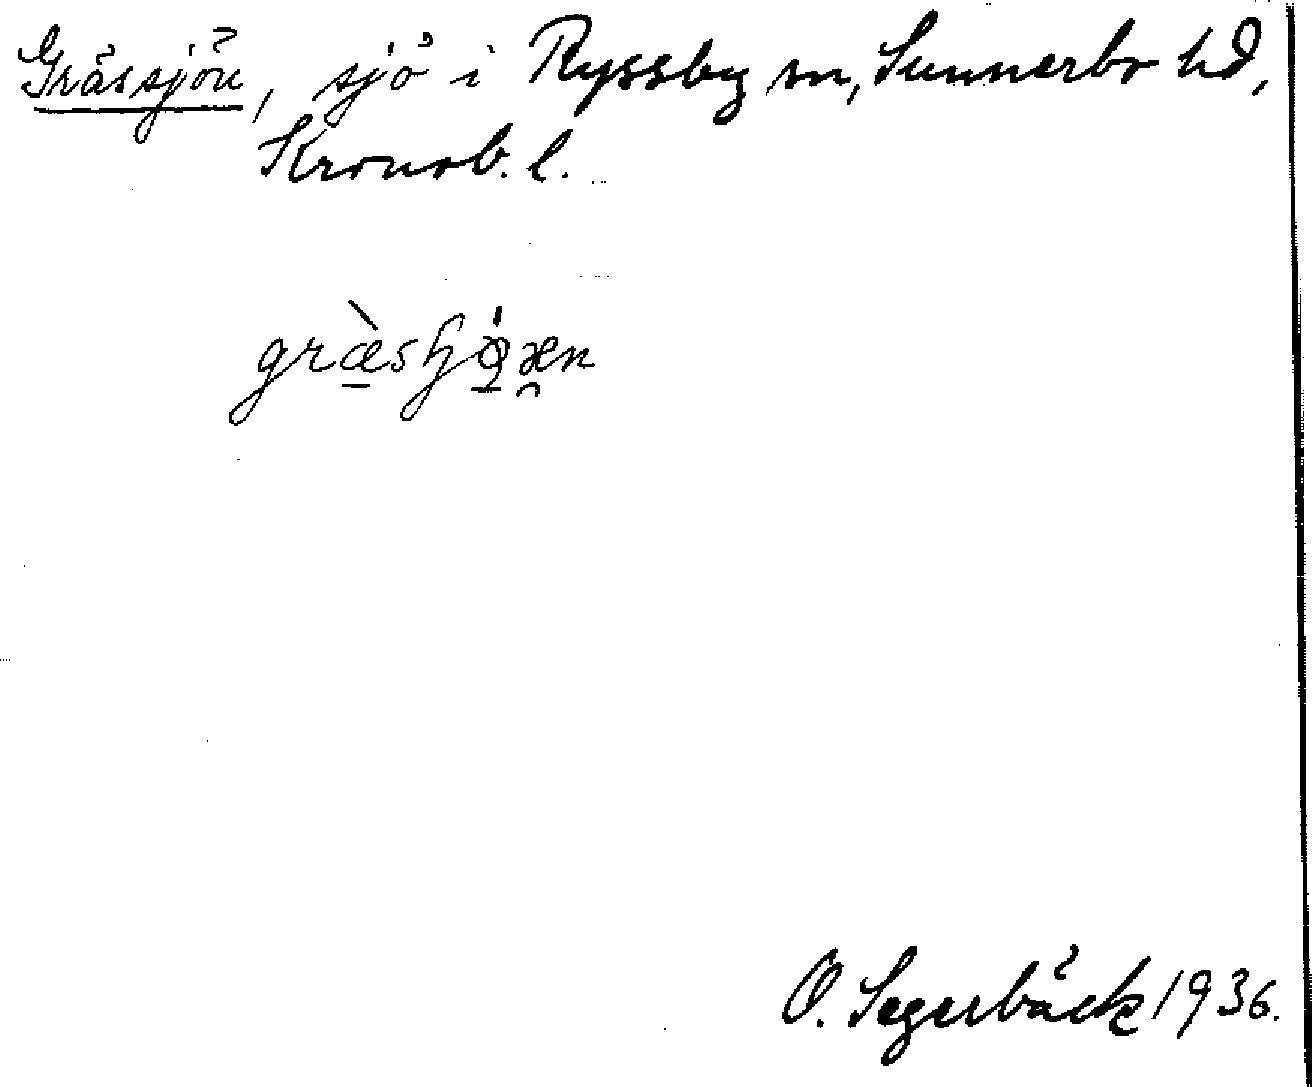 Grässjön, sjö i Ryssby sn, Sunnerbo hd,
Kronob. l.
græ̀sɧǫ́æ̯n
O. Segerbäck 1936.